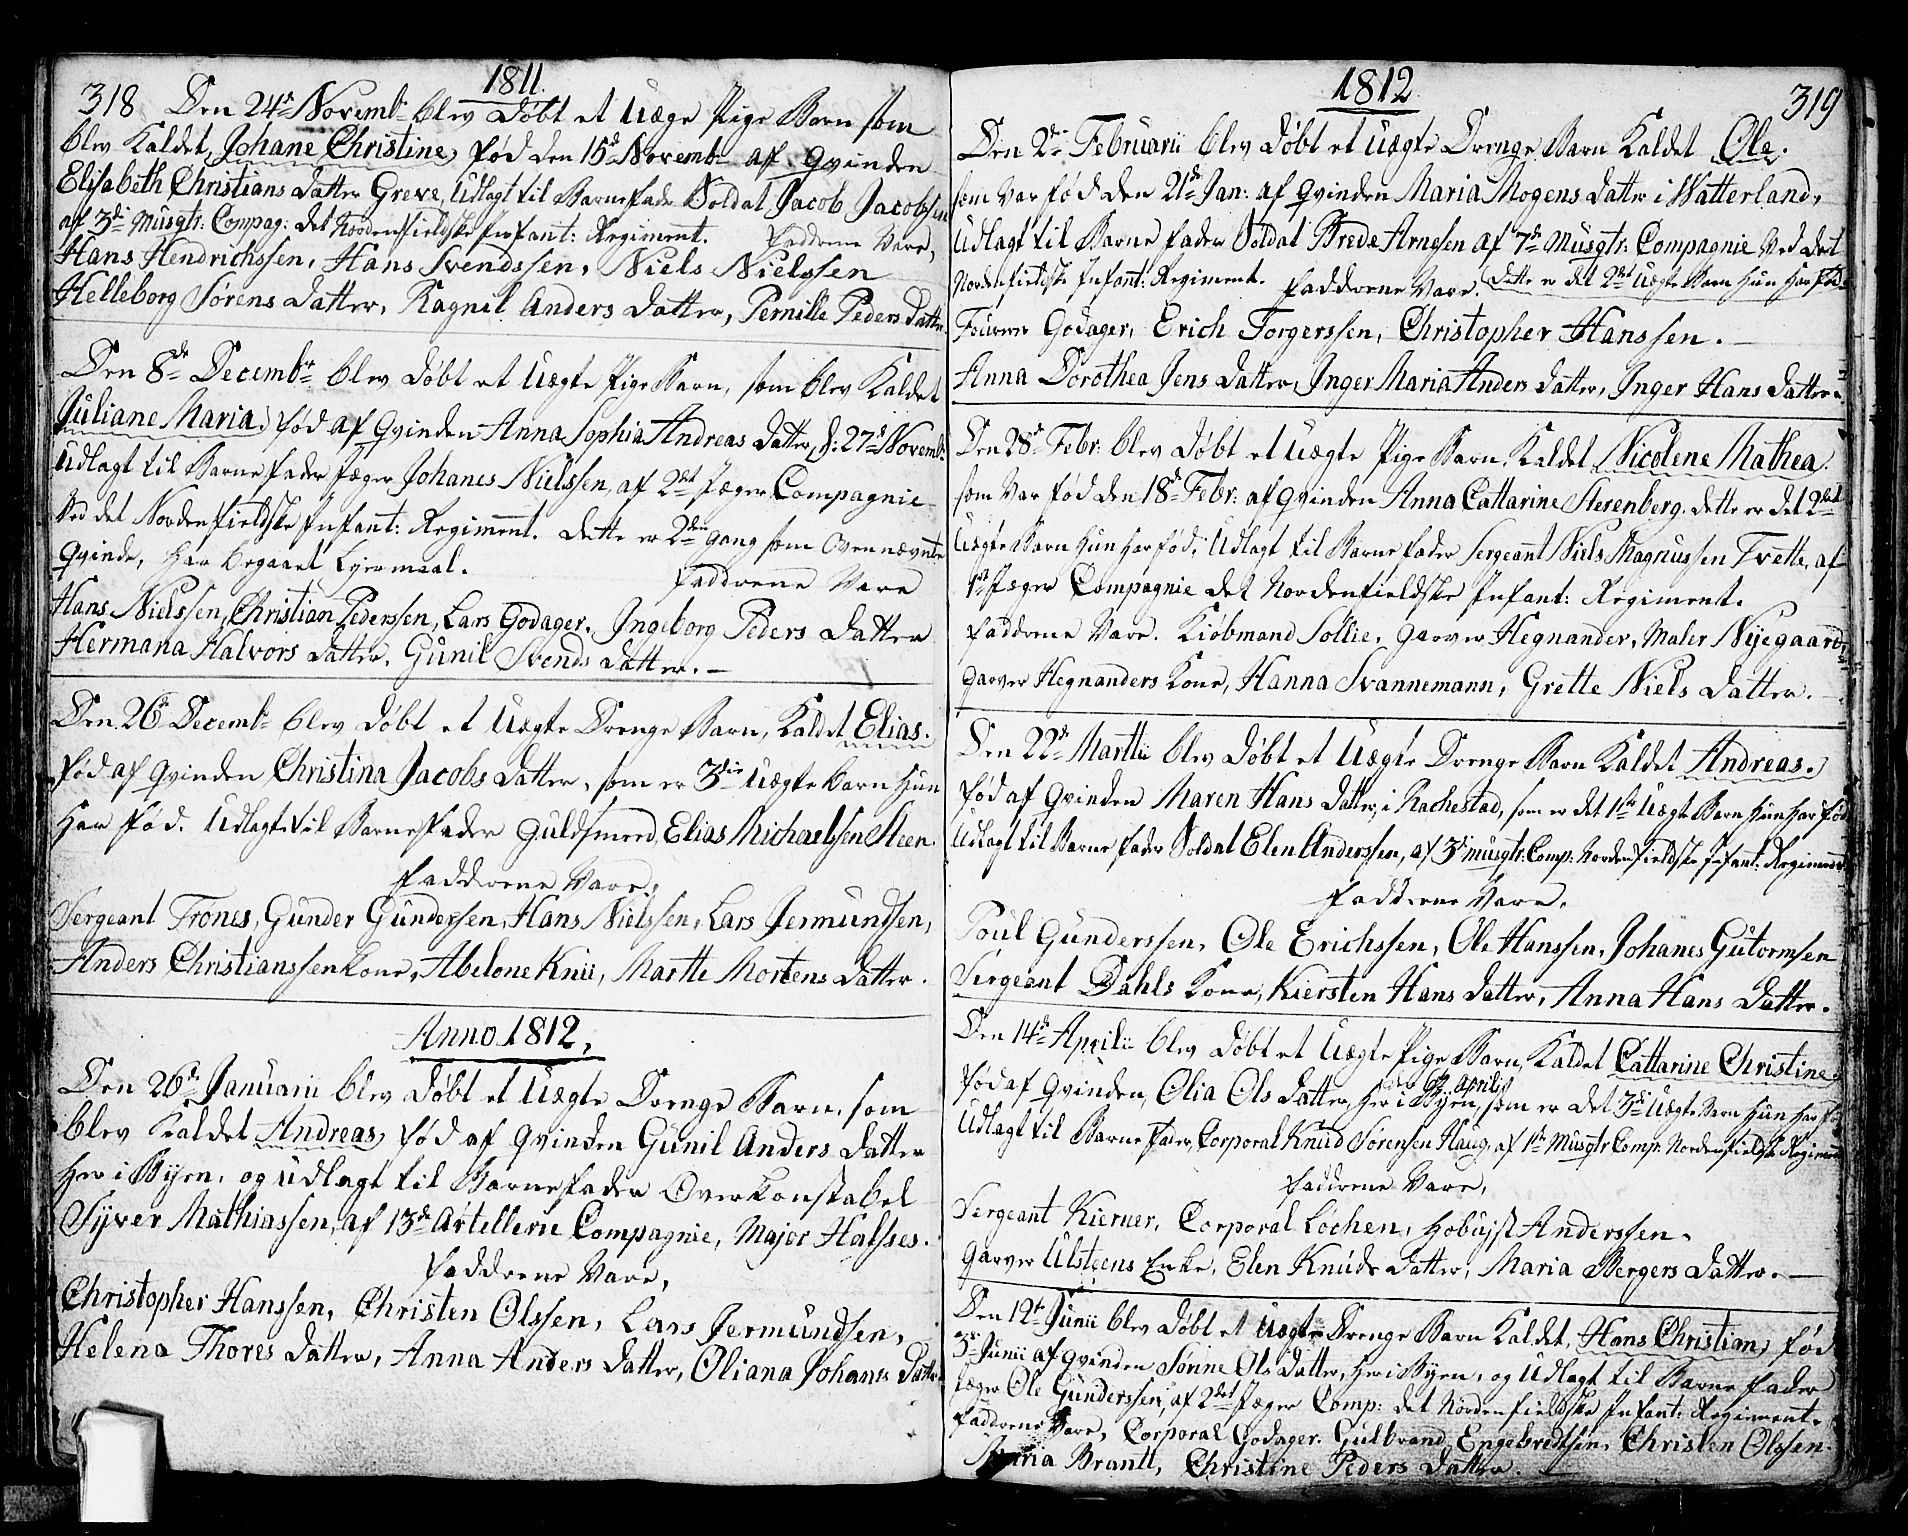 1811.
318 Den 24de Novembr blev Døbt et Uægte Pige Barn som
blev Kaldet, Johane Christine, fød den 15de Novembr af Qvinden
Elisabeth Christians Datter Greve, Udlagt til Barnefader Soldat Jacob Jacobsen
af 3die Musqtr: Compag: det Nordenfieldske Infant: Regiment. Faddrene Vare,
Hans Hendrichssen, Hans Svendssen, Niels Nielssen
Helleborg Sørens Datter, Ragnil Anders Datter, Pernille Peders Datter.
Den 8de Decembr blev Døbt et Uægte Pige Barn, som blev Kaldet
Juliane Maria, fød af Qvinden Anna Sophia Andreas Datter, d: 27de Novembr
Udlagt til Barnefader Jæger Johanes Nielssen, af 2det Jæger Compagnie
Ved det Nordenfieldske Infant: Regiment. Dette er 2den gang som Ovennævnte
Qvinde, har begaaet Leiermaal. Faddrene Vare
Hans Nielssen, Christian Pederssen, Lars Godager, Ingeborg Peders Datter
Hermana Halvors Datter, Gunil Svends Datter. –
Den 26de Decembr blev Døbt et Uægte Drenge Barn, Kaldet Elias.
fød af Qvinden Christina Jacobs Datter, som er 3die Uægte barn hun
har fød. Udlagte til Barnefader Guldsmed, Elias Michaelsen Steen.
Faddrene Vare,
Sergeant Trones, Gunder Gundersen, Hans Nielssen, Lars Jermundsen,
Anders Christianssen kone, Abelone Knii, Martte Mortens Datter.
Anno 1812,
Den 26de Januarii blev Døbt et Uægte Drenge Barn, som
blev Kaldet Andreas, fød af Qvinden Gunil Anders Datter
her i Byen, og Udlagt til Barnefader Overkonstabel
Syver Mathiassen, af 13de Artellerie Compagnie, Major Halses.
Faddrene Vare,
Christopher Hanssen, Christen Olssen, Lars Jermundsen,
Helena Thores Datter, Anna Anders Datter, Oliana Johanes Datter
1812.
319
Den 2den Februarii blev Døbt et Uægte Drenge Barn Kaldet Ole.
som var fød den 21de Jan: af Qvinden Maria Mogens Datter i Watterland,
Udlagt til Barnefader Soldat Brede Arnesen af 7de Musqtr: Compagnie ved det
Nordenfieldske Infant: Regiment. Faddrene Vare. Dette er det 2det Uægte Barn hun har fød.
Fourer Godager, Erich Torgerssen, Christopher Hanssen. –
Anna Dorothea Jens Datter, Inger Maria Anders Datter, Inger Hans Datter.
Den 28de Febr: blev Døbt et Uægte Pige Barn, Kaldet Nicolene Mathea.
som Var fød den 18de Febr: af Qvinden Anna Cattarine Sterenberg. dette er det 2det
Uægte Barn hun har fød, Udlagt til Barnefader Sergeant Niels Magnussen Tvette, af
1ste Jæger Compagnie det Nordenfieldske Infant: Regiment.
Faddrene Vare. Kiøbmand Sollie, Garver Hegnander, Maler Nyegaard,
Garver Hegnanders Kone, Hanna Svannemann, Grette Niels Datter.
Den 22de Martii blev Døbt et Uægte Drenge Barn Kaldet Andreas.
fød af Qvinden Maren Hans Datter, i Rachestad, som er det 1ste Uægte Barn hun har fød
Udlagt til Barnefader Soldat Elen Anderssen, af 3die musqtr: Comp: Nordenfieldske Infant: Regiment
Faddrene Vare,
Poul Gunderssen, Ole Erichssen, Ole Hanssen, Johanes Gutormsen
Sergeant Dahls Kone, Kiersten Hans Datter, Anna Hans Datter.
Den 14de Aprilii blev Døbt et Uægte Pige Barn, Kaldet Cattarine Christine,
aprilis
fød af Qvinden, Olia Ols Datter, her i Byen, som er det 3die Uægte Barn hun har fød
Udlagt til Barnefader, Corporal Knud Sørensen Haug, af 1ste Musqtr Comp: Nordenfieldske Regiment
Faddrene Vare,
Sergeant Kierner, Corporal Lochen, Anderssen.
Garver Ulsteens Enke, Elen Knuds Datter, Maria Bergers Datter. –
Den 12te Junii blev Døbt et Uægte Drenge Barn Kaldet, Hans Christian, fød
3die Junii af Qvinden Sønne Ols Datter, her i Byen, og Udlagt til Barnefader
Jæger Ole Gunderssen, af 2det Jæger Comp: det Nordenfieldske Infant: Regiment.
Faddrene Vare, Corporal Godager. Gulbrand Engebretsen, Christen Olssen.
Maria Brantt, Christine Peders Datter. –